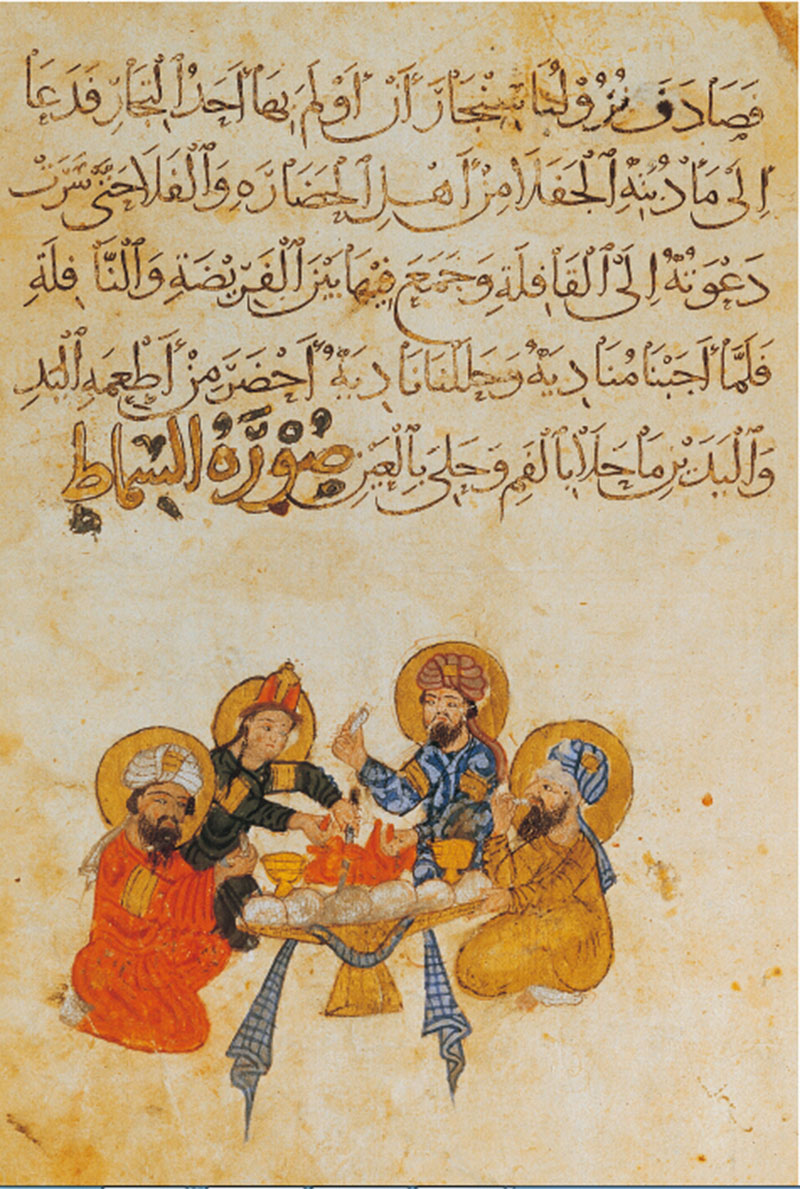 فَصَادَفَ نُزُوْلُنَا سِنْجَارَ أَنْ أَوْلَمَ بِهَا أَحَدُ التُّجَّارِ فَدَعَا
اِلَى مَأْدُبَتِهِ الْجَفَلَا مِنْ أَهْلِ الْحَضَارَةِ وَالْفَلَا حَتَّى سَرَتْ
دَعْوَتُهُ اِلَى الْقَافِلَةِ وَجَمَعَ فِيْهَا بَيْنَ الْفَرِيْضَةِ وَالنَّافِلَةِ
فَلَمَّا أَجَبْنَا مُنَادِيَهُ وَحَلَلْنَا نَادِيَهُ أَحْضَرَ مِنْ أَطْعِمَةِ الْيَدِ
وَالْيَدَيْنِ مَا حَلَا بِالْفَمِ وَحَلِيَ بِالْعَيْنِ صُوْرَةُ السِّمَاطِ